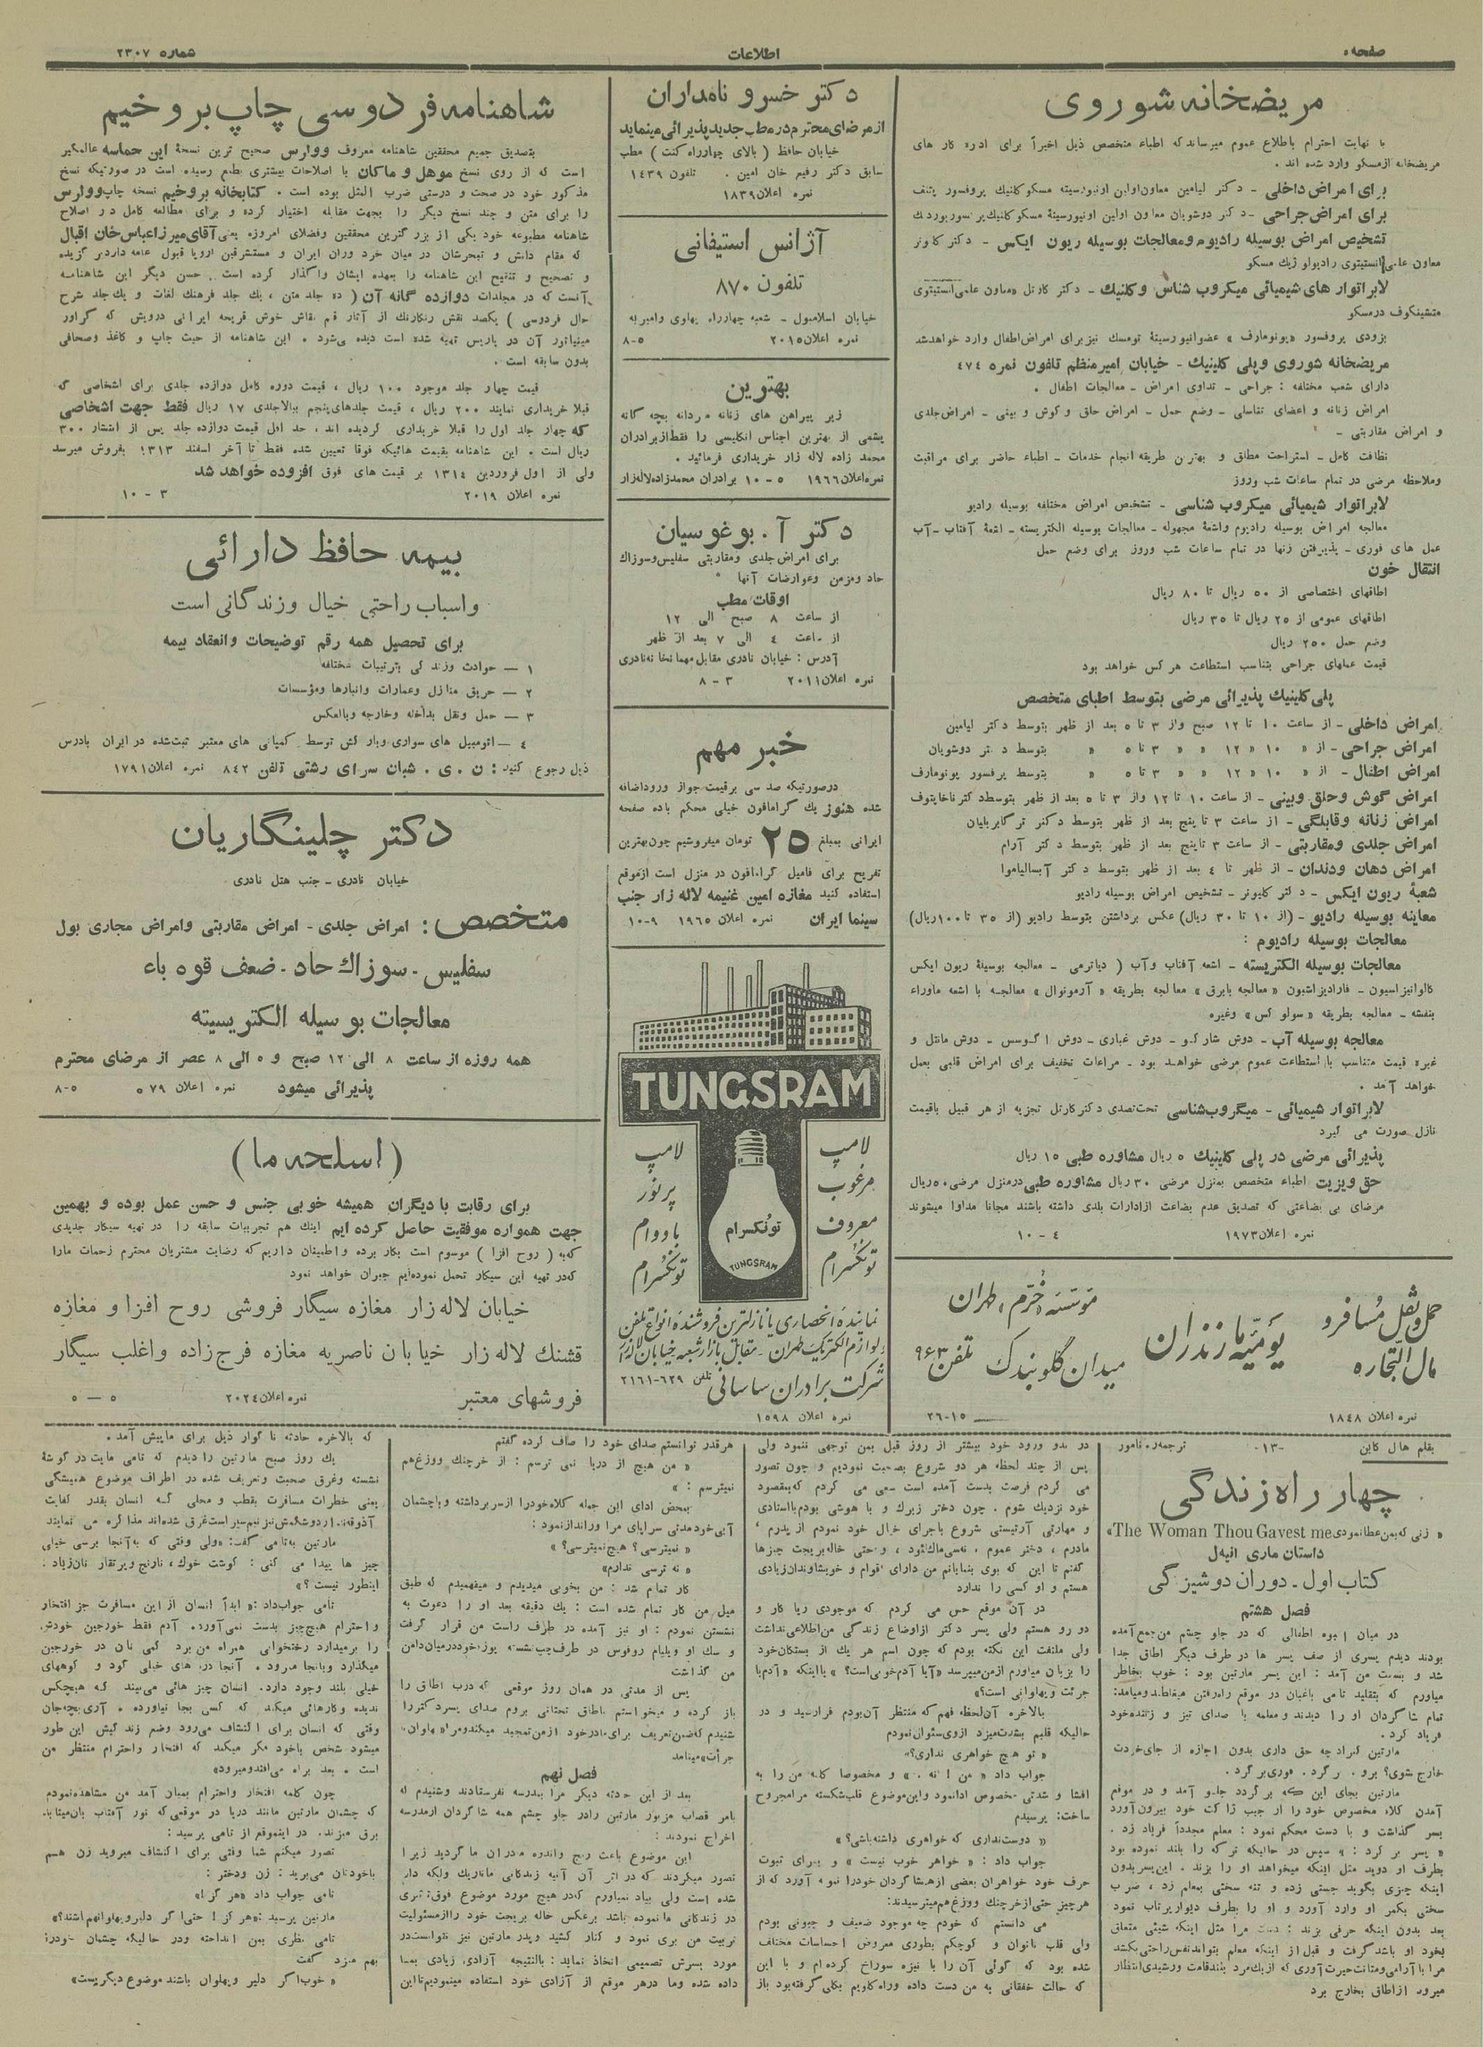 صفحه ۵
اطلاعات
شماره ۲۳۰۷
مریضخانه شوروی
با نهایت احترام باطلاع عموم میرساند که اطباء متخصص ذیل اخیراً برای اداره کار های
مریضخانه ازمسکو وارد شده اند .
برای امراض داخلی - دکتر لیامین معاون اولین اونیورسیته مسکو کلنیك پروفسور پتنف
برای امراض جراحی - دکتر دوشویان معاون اولین اونیورسیتهٔ مسکو کلنیك پرسور بوردنك
تشخیص امراض بوسیله رادیوم ومعالجات بوسیله ریون ایکس - دکتر کاونر
معاون علمی انستیتوی رادیولوژیك مسکو
لابراتوار های شیمیائی میکروب شناس وکلنیك - دکتر کارتل معاون علمی انستیتوی
متشینکوف درمسکو
بزودی پروفسور «یونومارف» عضواونیورسیتهٔ تومسك نیز برای امراض اطفال وارد خواهد شد
مریضخانه شوروی وپلی کلینیك - خیابان امیرمنظم تلفون نمره ۴۷۴
دارای شعب مختلفه : جراحی - تداوی امراض - معالجات اطفال .
امراض زنانه و اعضای تناسلی - وضع حمل - امراض حلق و گوش و بینی - امراض جلدی
و امراض مقاربتی -
نظافت کامل - استراحت مطلق و بهترین طریقه انجام خدمات - اطباء حاضر برای مراقبت
وملاحظه مرضی در تمام ساعات شب وروز
لابراتوار شیمیائی میکروب شناسی - تشخیص امراض مختلفه بوسیله رادیو
معالجه امراض بوسیله رادیوم واشعهٔ مجهوله - معالجات بوسیله الکتریسته - اشعهٔ آفتاب - آب
عمل های فوری - پذیرفتن زنها در تمام ساعات شب وروز برای وضع حمل
انتقال خون
اطاقهای اختصاصی از ۵۰ ریال تا ۸۰ ریال
اطاقهای عمومی از ۲۵ ریال تا ۳۵ ریال
وضع حمل ۲۵۰ ریال
قیمت عملهای جراحی بتناسب استطاعت هر کس خواهد بود
پلی کلینیك پذیرائی مرضی بتوسط اطبای متخصص
امراض داخلی - از ساعت ۱۰ تا ۱۲ صبح واز ۳ تا ۵ بعد از ظهر بتوسط دکتر لیامین
امراض جراحی - از « ۱۰ « ۱۲ « « ۳ تا ۵ « بتوسط دکتر دوشویان
امراض اطفال - از « ۱۰ « ۱۲ « « ۳ تا ۵ « بتوسط پرفسور یونومارف
امراض گوش وحلق وبینی - از ساعت ۱۰ تا ۱۲ واز ۳ تا ۵ بعد از ظهر بتوسط دکتر ناخایتوف
امراض زنانه وقابلگی - از ساعت ۳ تا پنج بعد از ظهر بتوسط دکتر ترگابریلیان
امراض جلدی ومقاربتی - از ساعت ۳ تا پنج بعد از ظهر بتوسط دکتر آرام
امراض دهان ودندان - از ظهر تا ۴ بعد از ظهر بتوسط دکتر آبسالیاموا
شعبهٔ ریون ایکس - دکتر کایونر - تشخیص امراض بوسیله رادیو
معاینه بوسیله رادیو - (از ۱۰ تا ۳۰ ریال) عکس برداشتن بتوسط رادیو (از ۳۵ تا ۱۰۰ ریال)
معالجات بوسیله رادیوم :
معالجات بوسیله الکتریسته - اشعه آفتاب وآب ( دیاترمی - معالجه بوسیلهٔ ریون ایکس
گالوانیزاسیون - فارادیزاسیون «معالجه بابرق» معالجه بطریقه «آرمونوال» معالجه با اشعه ماوراء
بنفشه - معالجه بطریقه «سولوکس» وغیره
معالجه بوسیله آب - دوش شارکو - دوش غباری - دوش اگوسس - دوش مانتل و
غیره قیمت متناسب با استطاعت عموم مرضی خواهد بود - مراعات تخفیف برای امراض قلبی بعمل
خواهد آمد .
لابراتوار شیمیائی - میکروب شناسی تحت تصدی دکتر کارتل تجزیه از هر قبیل باقیمت
نازل صورت می گیرد
پذیرائی مرضی در پلی کلینیك ۵ ریال مشاوره طبی ۱۵ ریال
حق ویزیت اطباء متخصص بمنزل مرضی ۳۰ ریال مشاوره طبی درمنزل مرضی ۵۰ ریال
مرضای بی بضاعتی که تصدیق عدم بضاعت ازادارات بلدی داشته باشند مجانا مداوا میشوند
نمره اعلان ۱۹۷۳ ۴ - ۱۰
حمل ونقل مسافر و
مال التجاره
یومیه مازندران
مؤسسه اخترم ، طهران
میدان گلوبندک تلفن ۹۶۳
نمره اعلان ۱۸۴۸ ۱۵-۲۶
دکتر خسرو نامداران
از مرضای محترم درمطب جدید پذیرائی مینماید
خیابان حافظ ( بالای چهارراه کنت ) مطب
سابق دکتر رفیع خان امین . تلفون ۱۴۳۹
نمره اعلان ۱۸۳۹
آژانس استیفانی
تلفون ۸۷۰
خیابان اسلامبول - شعبه چهارراه پهلوی وامیریه
نمره اعلان ۲۰۱۵ ۵-۸
بهترین
زیر پیراهن های زنانه مردانه بچه گانه
پشمی از بهترین اجناس انگلیسی را فقط از برادران
محمد زاده لاله زار خریداری فرمائید .
نمره اعلان ۱۹۶۶ ۵ - ۱۰ برادران محمدزاده لاله زار
دکتر آ . بوغوسیان
برای امراض جلدی ومقاربتی سفلیس وسوزاك
حاد ومزمن وعوارضات آنها
اوقات مطب
از ساعت ۸ صبح الی ۱۲
از ساعت ۴ الی ۷ بعد از ظهر
آدرس : خیابان نادری مقابل مهمانخانه نادری
نمره اعلان ۲۰۱۱ ۳ - ۸
خبر مهم
درصورتیکه صد سی برقیمت جواز ورود اضافه
شده هنوز یك گرامافون خیلی محکم باده صفحه
ایرانی بمبلغ ۲۵ تومان میفروشیم چون بهترین
تفریح برای فامیل گرامافون در منزل است ازموقع
استفاده کنید مغازه امین غنیمه لاله زار جنب
سینما ایران نمره اعلان ۱۹۶۵ ۹-۱۰
TUNGSRAM
لامپ
مرغوب
معروف
تونگسرام
لامپ
پرنور
بادوام
تونگسرام
تونگسرام
TUNGSRAM
نماینده انحصاری با نازلترین فروشنده انواع تلفن
ولوازم الکتریک طهران - مقابل بازار شعبه خیابان لاله زار
شرکت برادران ساسانی تلفن ۶۲۹-۲۱۶۱
نمره اعلان ۱۵۹۸
شاهنامه فردوسی چاپ بروخیم
بتصدیق جمیع محققین شاهنامه معروف وولرس صحیح ترین نسخهٔ این حماسه عالمگیر
است که از روی نسخ موهل و ماکان با اصلاحات بیشتری بطبع رسیده است در صورتیکه نسخ
مذکور خود در صحت و درستی ضرب المثل بوده است . کتابخانه بروخیم نسخه چاپ وولرس
را برای متن و چند نسخ دیگر را بجهت مقابله اختیار کرده و برای مطالعه کامل در اصلاح
شاهنامه مطبوعه خود یکی از بزرگترین محققین وفضلای امروزه یعنی آقای میرزا عباس خان اقبال
که مقام دانش و تبحرشان در میان خرد وران ایران و مستشرقین اروپا قبول عامه دارد برگزیده
و تصحیح و تنقیح این شاهنامه را بعهده ایشان واگذار کرده است . حسن دیگر این شاهنامه
آنست که در مجلدات دوازده گانه آن ( ده جلد متن ، یك جلد فرهنك لغات و یك جلد شرح
حال فردوسی ) یکصد نقش رنگارنك از آثار قلم نقاش خوش قریحه ایرانی درویش که گراور
مینیاتور آن در پاریس تهیه شده است دیده می شود . این شاهنامه از حیث چاپ و کاغذ وصحافی
بدون سابقه است .
قیمت چهار جلد موجود ۱۰۰ ریال ، قیمت دوره کامل دوازده جلدی برای اشخاصی که
قبلا خریداری نمایند ۲۰۰ ریال ، قیمت جلدهای پنجم ببالا جلدی ۱۷ ریال فقط جهت اشخاصی
که چهار جلد اول را قبلا خریداری کردیده اند ، حد اقل قیمت دوازده جلد پس از انتشار ۳۰۰
ریال است . این شاهنامه بقیمت هائیکه فوقا تعیین شده فقط تا آخر اسفند ۱۳۱۳ بفروش میرسد
ولی از اول فروردین ۱۳۱۴ بر قیمت های فوق افزوده خواهد شد
نمره اعلان ۲۰۱۹ ۳ - ۱۰
بیمه حافظ دارائی
واسباب راحتی خیال وزندگانی است
برای تحصیل همه رقم توضیحات وانعقاد بیمه
۱ — حوادث وزندگی بترتیبات مختلفه
۲ — حریق منازل وعمارات وانبارها ومؤسسات
۳ — حمل ونقل بداخله وخارجه وبالعکس
۴ — اتومبیل های سواری وبارکش توسط کمپانی های معتبر ثبت شده در ایران بآدرس
ذیل رجوع کنید : ن . ی . شبان سرای رشتی تلفن ۸۴۲ نمره اعلان ۱۷۹۱
دکتر چلینگاریان
خیابان نادری - جنب هتل نادری
متخصص : امراض جلدی - امراض مقاربتی وامراض مجاری بول
سفلیس - سوزاك حاد - ضعف قوه باء
معالجات بوسیله الکتریسیته
همه روزه از ساعت ۸ الی ۱۲ صبح و ۵ الی ۸ عصر از مرضای محترم
پذیرائی میشود نمره اعلان ۵۷۹ ۵-۸
(اسلحه ما)
برای رقابت با دیگران همیشه خوبی جنس و حسن عمل بوده و بهمین
جهت همواره موفقیت حاصل کرده ایم اینك هم تجربیات سابقه را در تهیه سیگار جدیدی
که به ( روح افزا ) موسوم است بکار برده واطمینان داریم که رضایت مشتریان محترم زحمات مارا
که در تهیه این سیگار تحمل نموده ایم جبران خواهد نمود
خیابان لاله زار مغازه سیگار فروشی روح افزا و مغازه
قشنك لاله زار خیابان ناصریه مغازه فرج زاده واغلب سیگار
فروشهای معتبر نمره اعلان ۲۰۲۴ ۵ — ۵
بقلم هال کاین -۱۳- ترجمه ه نامور
چهار راه زندگی
« زنی که بمن عطا نمودی The Woman Thou Gavest me»
داستان ماری انیل
کتاب اول - دوران دوشیزگی
فصل هشتم
در میان انبوه اطفالی که در جلو چشم من جمع آمده
بودند دیدم پسری از صف پسر ها در طرف دیگر اطاق جدا
شد و بسمت من آمد : این پسر مارتین بود : خوب بخاطر
میاورم که بتقلید تامی باغبان در موقع راه رفتن میغلطید ومیامد:
تمام شاگردان او را دیدند و معلمه با صدای تیز و زننده خود
فریاد کرد .
مارتین کنراد چه حق داری بدون اجازه از جای خودت
خارج شوی؟ برو . برگرد . فوری برگرد .
مارتین بجای این که برگردد جلو آمد و در موقع
آمدن کلاه مخصوص خود را از جیب ژاکت خود بیرون آورد
بسر گذاشت و با دست محکم نمود : معلم مجدداً فریاد زد .
« پسر برگرد : » سپس در حالیکه ترکه را بلند نموده بود
بطرف او دوید مثل اینکه میخواهد او را بزند . این پسر بدون
اینکه چیزی بگوید جستی زده و تنه سختی بمعلم زد ، ضرب
سختی بکمر او وارد آورد و او را بطرف دیوار پرتاب نمود
بعد بدون اینکه حرفی بزند : دست مرا مثل اینکه شیئی متعلق
بخود او باشد گرفت و قبل از اینکه معلم بتواند نفس راحتی بکشد
مرا با آرامی ومتانت حیرت آوری که از یك مرد بلند قامت ورشیدی انتظار
میرود از اطاق بخارج برد
در بدو ورود خود بیشتر از روز قبل بمن توجهی ننمود ولی
پس از چند لحظه هر دو شروع بصحبت نمودیم و چون تصور
می کردم فرصت بدست آمده است سعی می کردم که بمقصود
خود نزدیك شوم . چون دختر زیرك و با هوشی بودم بااستادی
و مهارتی آرتیستی شروع باجرای خیال خود نمودم از پدرم ،
مادرم ، دختر عموم ، نانسی ماك لئود ، وحتی خاله بریجت چیزها
گفتم تا این که بوی بنمایانم من دارای اقوام و خویشاوندان زیادی
هستم و او کسی را ندارد
در آن موقع حس می کردم که موجودی ریا کار و
دو رو هستم ولی پسر دکتر ازاوضاع زندگی من اطلاعی نداشت
ولی ملتفت این نکته بودم که چون اسم هر یك از بستگان خود
را بزبان میاورم ازمن میپرسد «آیا آدم خوبی است؟» یااینکه «آدم با
جرئت وپهلوانی است؟»
بالاخره آن لحظه مهم که منتظر آن بودم فرا رسید و در
حالیکه قلبم بشدت میزد ازوی سئوال نمودم
« تو هیچ خواهری نداری؟»
جواب داد « من ! نه . » و مخصوصا کلمه من را به
افشا و شدتی مخصوص ادانمود واین موضوع قلب شکسته مرا مجروح
ساخت: پرسیدم
« دوست نداری که خواهری داشته باشی؟ »
جواب داد : « خواهر خوب نیست » و برای ثبوت
حرف خود خواهران بعضی ازهمشاگردان خودرا نمونه آورد که از
هرچیز حتی ازخرچنك ووزغ هم میترسیدند:
می دانستم که خودم چه موجود ضعیف و جبونی بودم
ولی قلب ناتوان و کوچکم بطوری معروض احساسات مختلف
شده بود که گوئی آن را با نیزه سوراخ کرده ام و با این
که حالت خفقانی به من دست داده وراه گلویم بکلی گرفته بود باز
هرقدر توانستم صدای خود را صاف کرده گفتم
« من هیچ از دریا نمی ترسم : از خرچنك ووزغ هم
نمیترسم : »
بمحض ادای این جمله کلاه خودرا ازسر برداشته وباچشمان
آبی خود مدتی سراپای مرا ورانداز نمود:
« نمیترسی؟ هیچ نمیترسی؟ »
« نه ترسی ندارم»
کار تمام شد : من بخوبی میدیدم و میفهمیدم که طبق
میل من کار تمام شده است : یك دقیقه بعد او را دعوت به
نشستن نمودم : او نیز آمده در طرف راست من قرار گرفت
و سك او ویلیام روفوس در طرف چپ نشسته پوز خود درمیان دامن
من گذاشت
پس از مدتی در همان روز موقعی که درب اطاق را
باز کرده و میخواستم باطاق تحتانی بروم صدای پسر دکتر را
شنیدم که ضمن تعریف برای مادرخود ازمن تمجید میکند ومرا «پهلوان،
جرأت» مینامد
فصل نهم
بعد از این حادثه دیگر مرا بمدرسه نفرستادند وشنیدم که
بامر قصاب مزبور مارتین رادر جلو چشم همه شاگردان ازمدرسه
اخراج نمودند :
این موضوع باعث رنج واندوه مادران ما گردید زیرا
تصور میکردند که در اثر آن آتیه زندگانی ما تاریك ولکه دار
شده است ولی بیاد نمیاورم که در هیچ مورد موضوع فوق تأثیری
در زندگانی ما نموده باشد برعکس خاله بریجت خود را ازمسئولیت
تربیت من بری نمود و کنار کشید وپدر مارتین نیز نتوانست در
مورد پسرش تصمیمی اتخاذ نماید : بالنتیجه آزادی زیادی بما
داده شده وما درهر موقع از آزادی خود استفاده مینمودیم تا این
که بالاخره حادثه نا گوار ذیل برای ما پیش آمد .
یك روز صبح مارتین را دیدم که تامی هایت در گوشهٔ
نشسته وغرق صحبت وتعریف شده در اطراف موضوع همیشگی
یعنی خطرات مسافرت بقطب و محلی که انسان بقدر کفایت
آذوقه ، اردو شکمش نیز نیم سیر است غرق شده اند مذاکره می نمایند
مارتین به تامی گفت: «ولی وقتی که به آنجا برسی خیلی
چیز ها پیدا می کنی : گوشت خوك، نارنج وپرتقار نان زیاد :
اینطور نیست ؟»
تامی جواب داد : «ابداً انسان از این مسافرت جز افتخار
و احترام هیچ چیز بدست نمی آورد. آدم فقط خورجین خودش
را برمیدارد رختخوابی همراه من برد کمی نان در خورجین
میگذارد وبآنجا میرود . آنجا دره های خیلی گود و کوههای
خیلی بلند وجود دارد. انسان چیز هائی می بیند که هیچکس
ندیده و کارهائی میکند که کسی بجا نیاورده . آری بچه جان
وقتی که انسان برای اکتشاف می رود وضع زندگیش این طور
میشود شخص باخود فکر میکند که افتخار واحترام منتظر من
است . بعد براه می افتد ومیرود»
چون کلمه افتخار واحترام بمیان آمد من مشاهده نمودم
که چشمان مارتین مانند دریا در موقعی که نور آفتاب بآن میتابد.
برق میزند. در اینموقع از تامی پرسید :
تصور میکنم شما وقتی برای اکتشاف میروید زن هم
باخودتان می برید : زن ودختر :
تامی جواب داد «هرگز!»
مارتین پرسید :«هرگز ! حتی اگر دلیر وپهلوانهم باشند؟»
تامی نظری بمن انداخته ودر حالیکه چشمان خودرا
بهم میزد گفت
« خوب اگر دلیر وپهلوان باشند موضوع دیگریست»